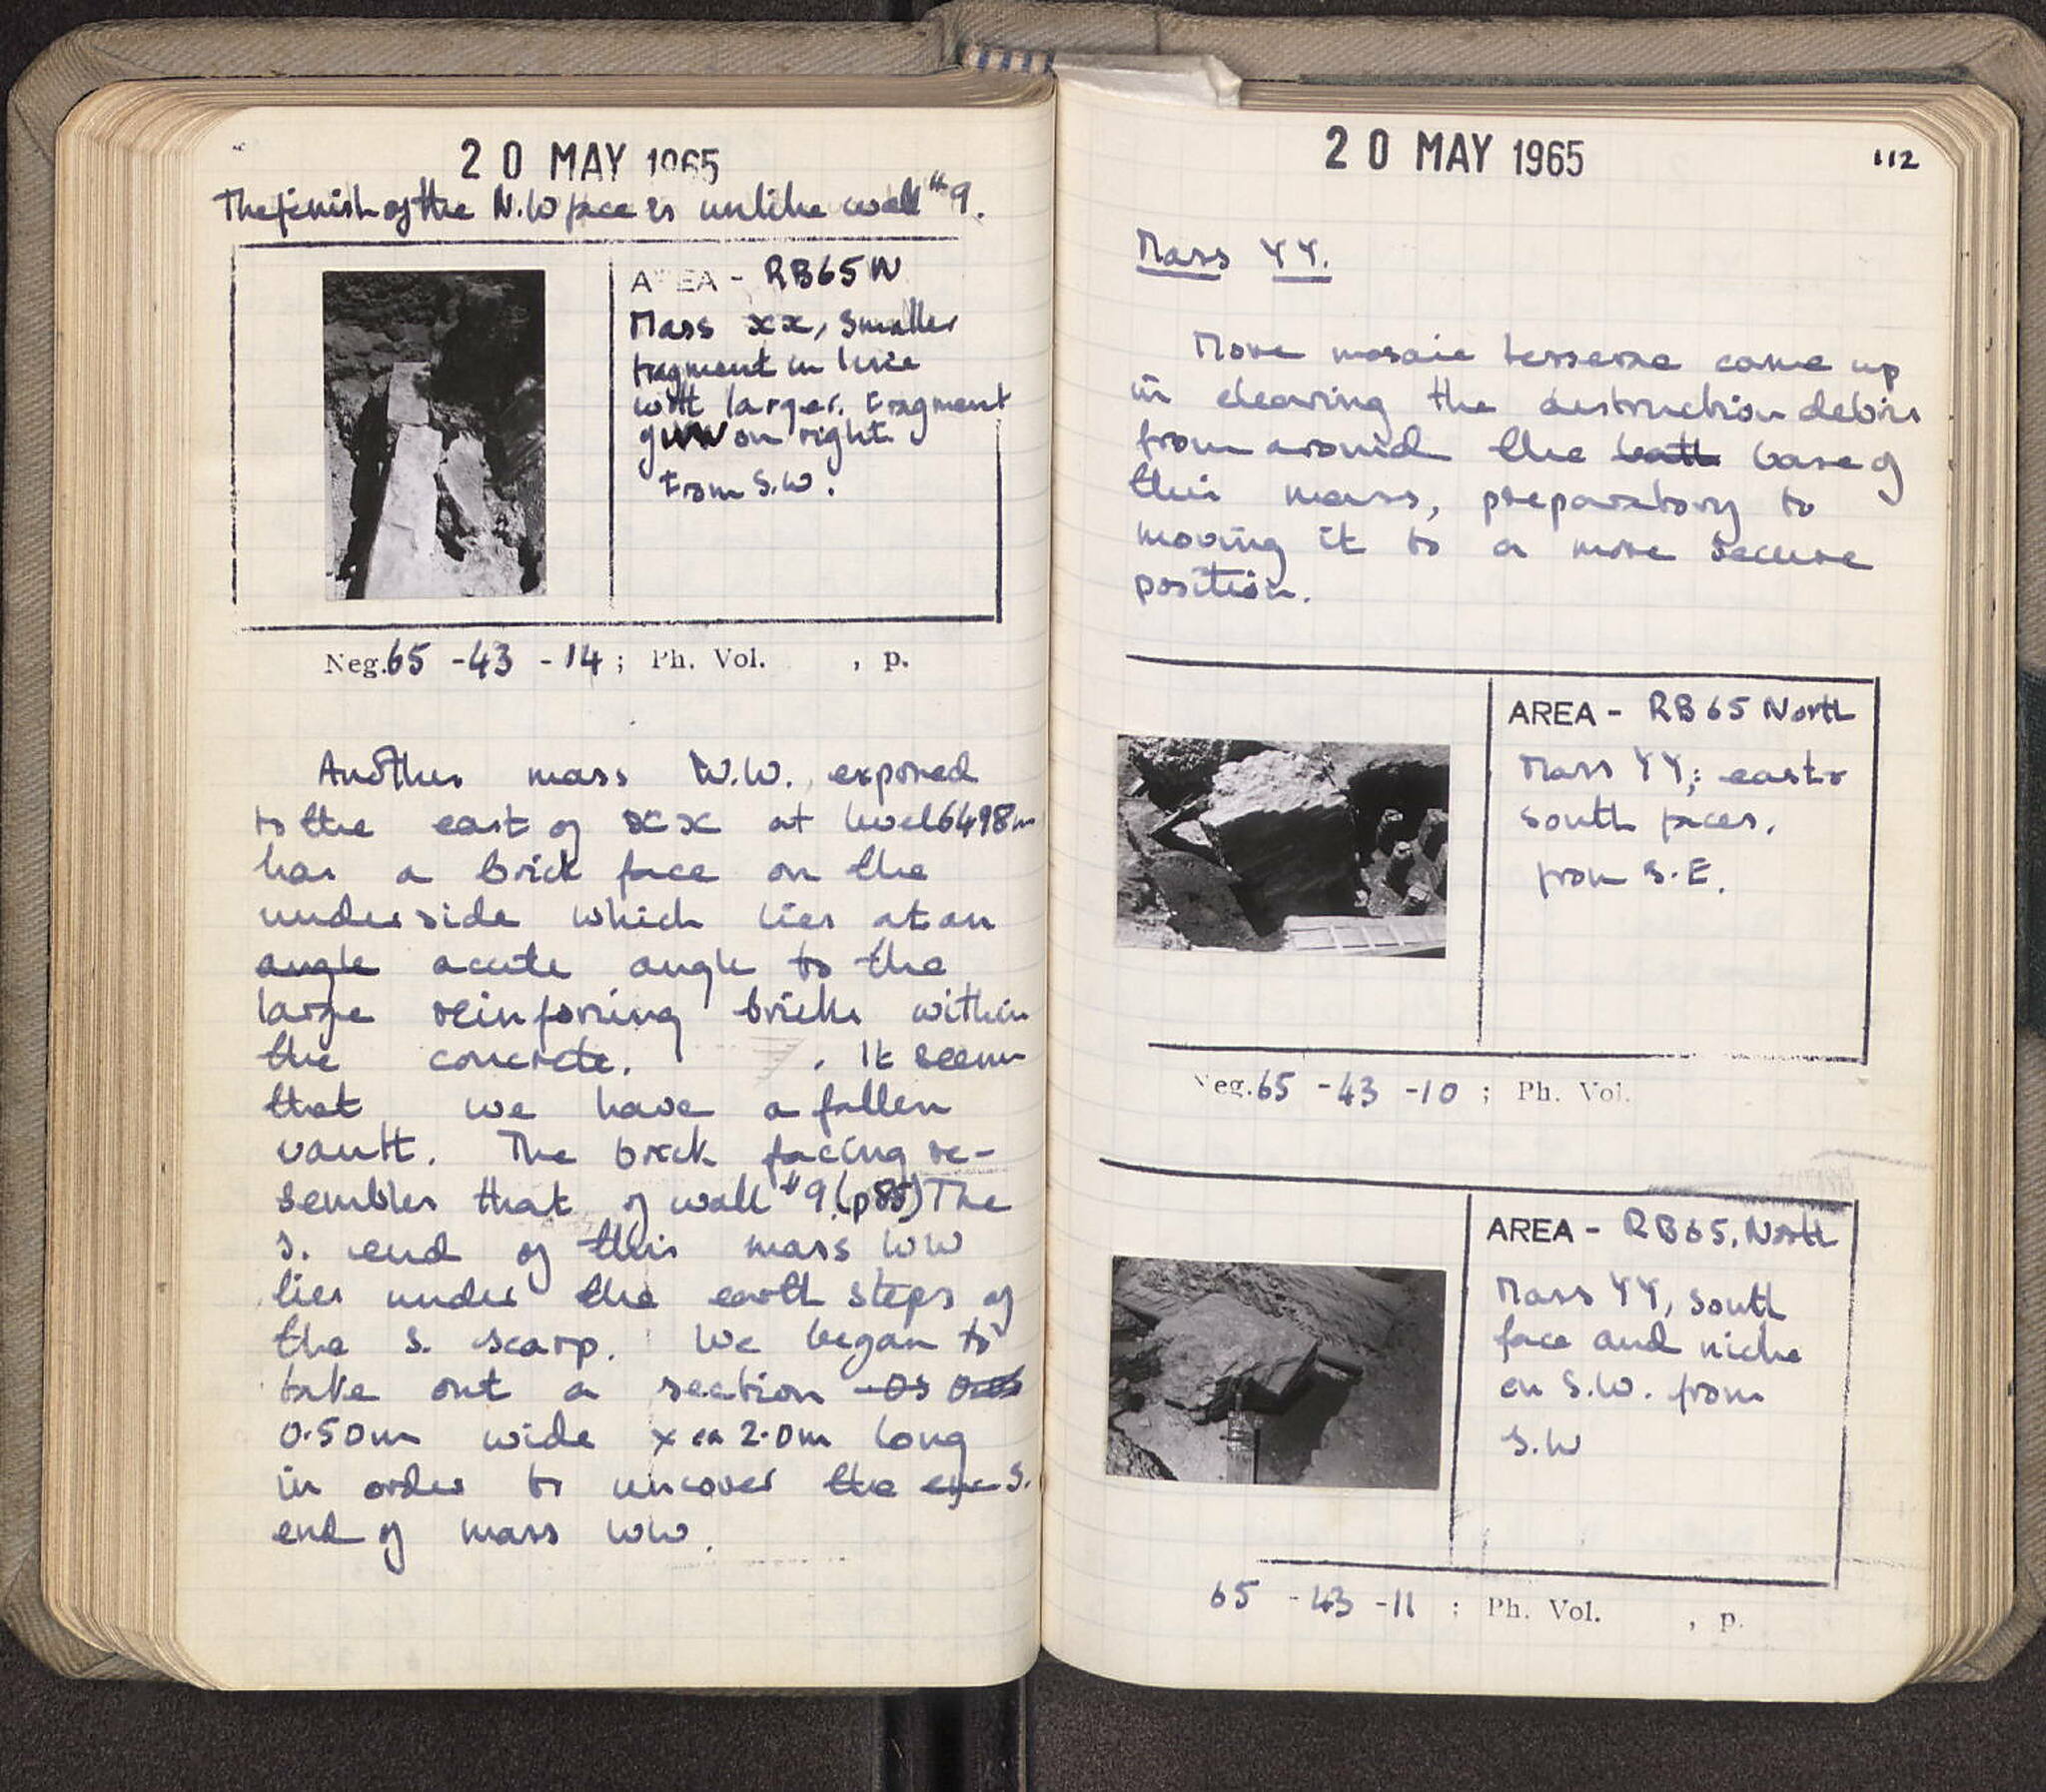 20 MAY 1965
The finish of the N.W face is unlike wall #9.
AREA - RB65 N
Mass xx, smaller
fragment in line
with larger. Fragment
on right
From S.W.
Neg. 65 - 43 - 14 ; Ph. Vol. , p.
Another mass W.W., exposed
to the east of xx at level 6498m
has a brick face on the
underside which lies at an
angle acute angle to the
large reinforcing bricks within
the concrete. . It seems
that we have a fallen
vault. The brick facing re-
sembles that of wall #9. (p85) The
S. end of this mass WW
lies under the earth steps of
the S. scarp. We began to
take out a section
0.50m wide x ca 2.0m long
in order to uncover the S.
end of mass WW.
20 MAY 1965
112
Mass YY.
More mosaic tesserae came up
in clearing the destruction debris
from around the base of
this mass, preparatory to
moving it to a more secure
position.
AREA - RB 65 North
Mass YY; east &
south faces.
from S.E.
Neg. 65 - 43 - 10 ; Ph. Vol.
AREA - RB65. North
Mass YY, south
face and niche
on S.W. from
S.W
65 - 43 - 11 ; Ph. Vol. , p.